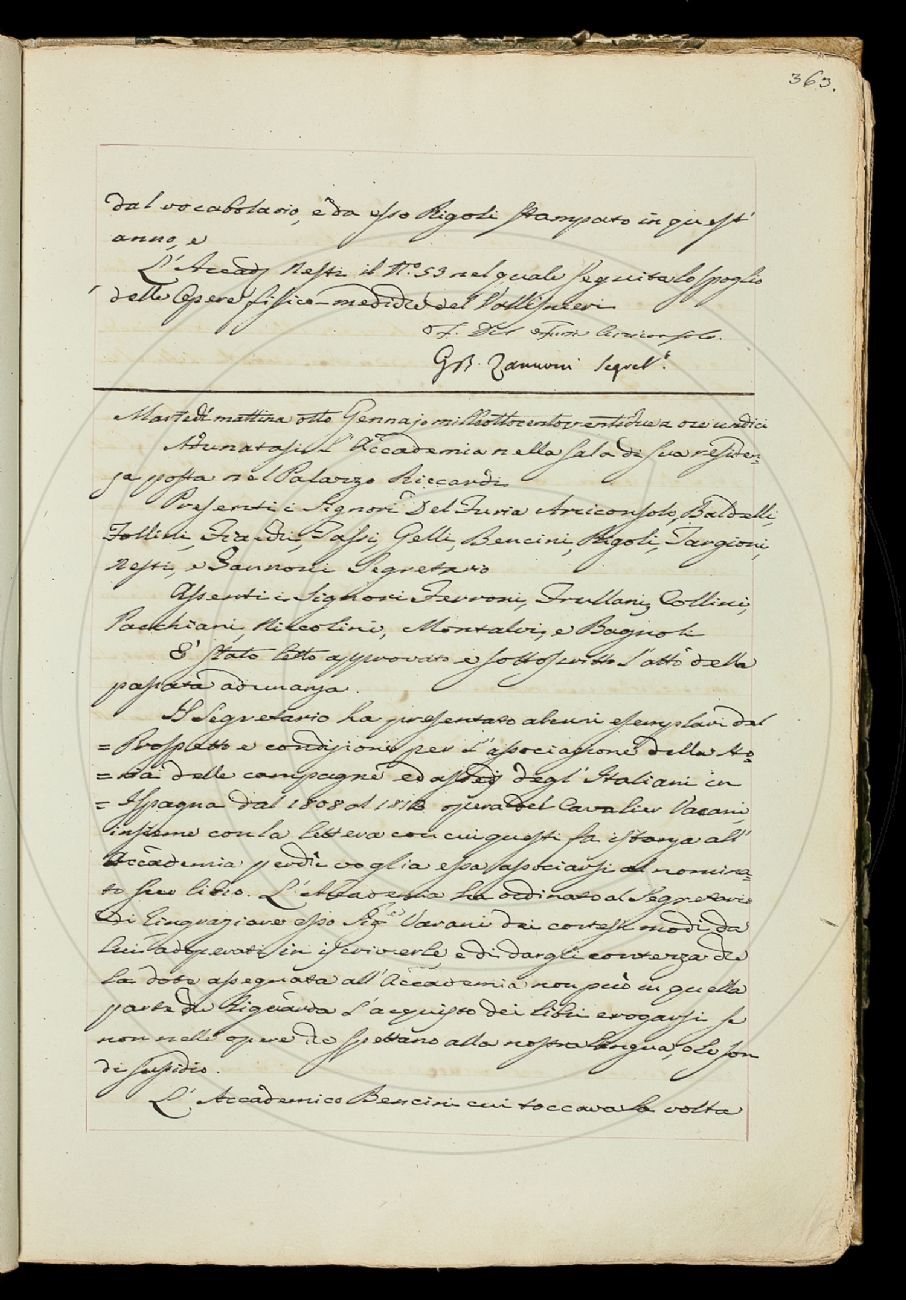 363.
dal vocabolario, e da esso Rigoli stampato in quest'
anno, e
L'Accad. Nesti il N.° 53 nel quale seguita lo spoglio
delle Opere fisico-mediche del Vallisnieri
F. Del Furia Arciconsolo.
GB. Zannoni Segret.°
Martedì mattina otto Gennajo mille ottocento ventidue a ore undici
Adunatasi l'Accademia nella sala di sua residen=
za posta nel Palazzo Riccardi
Presenti i Signori Del Furia Arciconsolo, Baldelli,
Follini, Fiacchi, Sassi, Gelli, Bencini, Rigoli, Targioni,
Nesti, e Zannoni Segretario
Assenti i Signori Ferroni, Frullani, Collini,
Pacchiani, Niccolini, Montalvi, e Bagnoli
E' stato letto approvato e sottoscritto l'atto della
passata adunanza.
Il Segretario ha presentato alcuni esemplari del
= Prospetto e condizioni per l'associazione della Sto=
= ria delle campagne ed assedj degl'Italiani in
= Ispagna dal 1808 al 1813 opera del Cavalier Vacani,
insieme con la lettera con cui questi fa istanza all'
Accademia perchè voglia essa associarsi al nomina=
to suo libro. L'Accademia ha ordinato al Segretario
di ringraziare esso Sig.re Vacani dei cortesi modi da
lui adoperati in iscriverle, e di dargli contezza che
la dote assegnata all'Accademia non può in quella
parte che riguarda l'acquisto dei libri erogarsi se
non nelle opere che spettano alla nostra lingua, o le son
di sussidio.
L'Accademico Bencini cui toccava la volta